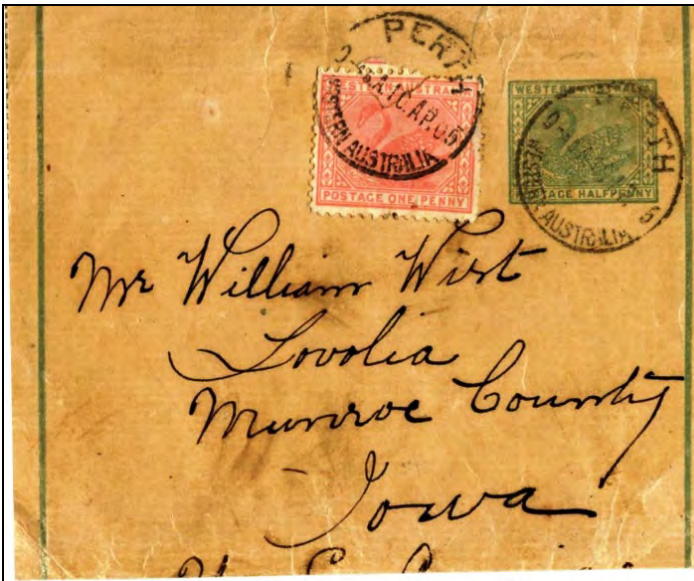 PERTH
9- A.10.AP.05
WESTERN AUSTRALIA
WESTERN AUSTRALIA
POSTAGE ONE PENNY
WESTERN AUSTRALIA
POSTAGE HALFPENNY
PERTH
WESTERN AUSTRALIA
Mr William Wirt
Lovolia
Munroe County
Iowa
U. S.